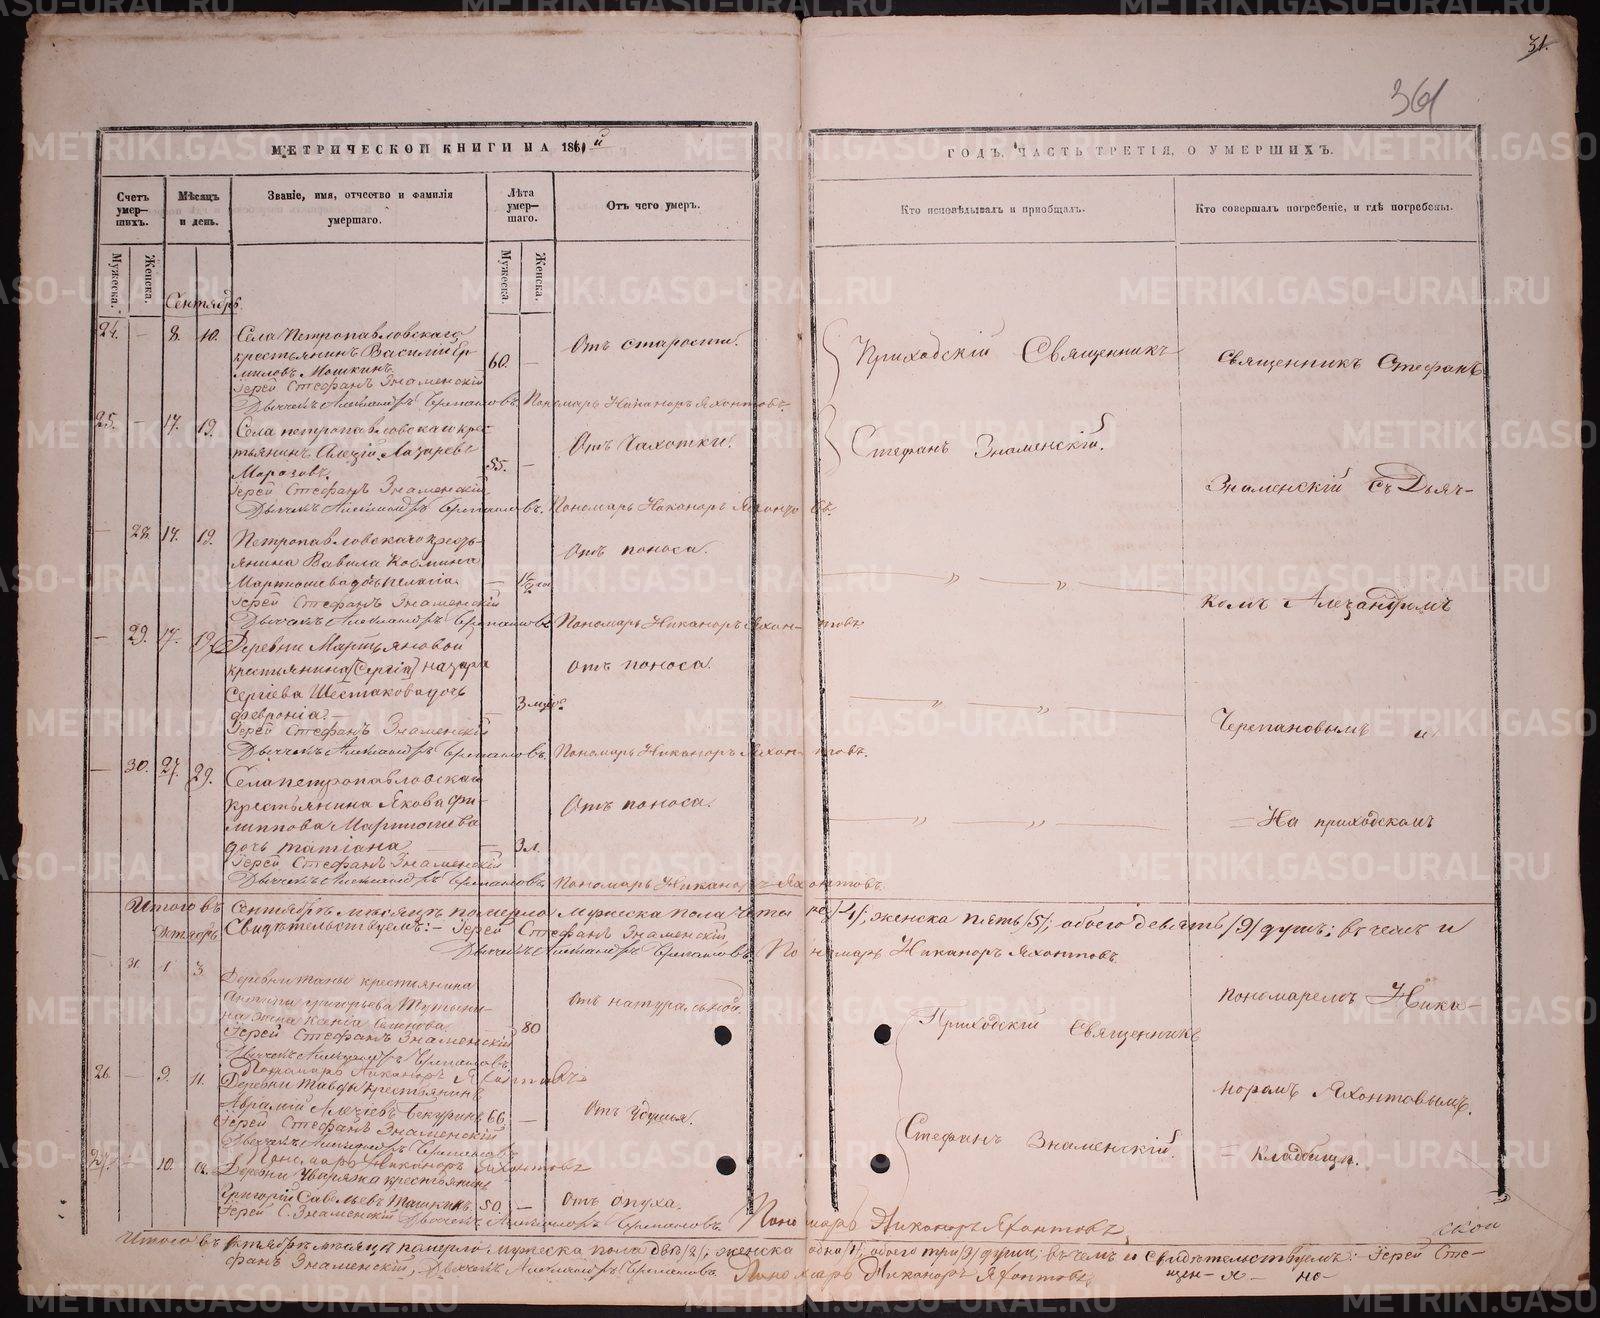 31.
361
МЕТРИЧЕСКОЙ КНИГИ НА 1861й
ГОДЪ, ЧАСТЬ ТРЕТІЯ, О УМЕРШИХЪ.
Счетъ умер— шихъ.
Мѣсяцъ и день.
Званіе, имя, отчество и фамилія умершаго.
Лѣта умер— шаго.
Отъ чего умеръ.
Кто исповѣдывалъ и пріобщалъ.
Кто совершалъ погребеніе, и гдѣ погребены.
Мужеска. Женска.
Мужеска. Женска.
Сентябрь
24. — 8. 10. Села Петропавловскаго
крестьянинъ Василій Ер-
миловъ Мошкинъ. 60. — Отъ старости.
Іерей Стефанъ Знаменскій
Дьячекъ Александръ Черепановъ. Пономарь Никаноръ Яхонтовъ.
25. — 17. 19. Села петропавловскаго крес-
тьянинъ Алексій Лазаревъ
Морозовъ. 55. — Отъ Чахотки.
Іерей Стефанъ Знаменскій
Дьячекъ Александръ Черепановъ. Пономарь Никаноръ Яхонтовъ.
— 28. 17. 19. Петропавловскаго крестъ-
янина Вавила Козмина
Мартюшева дочь Пелагія. Отъ поноса.
Іерей Стефанъ Знаменскій
Дьячекъ Александръ Черепановъ Пономарь Никаноръ Яхонтовъ.
— 29. 17. 19. Деревни Мартьяновой
крестьянина [Сергія] назара
Сергіева Шестакова дочь
Февронія. — 3 мѣс. Отъ поноса.
Іерей Стефанъ Знаменскій
Дьячекъ Александръ Черепановъ. Пономарь Никаноръ Яхонтовъ.
— 30. 27. 29. Села петропавловскаго
крестьянина Якова Фи-
липпова Мартюшева
дочь татіана — 3 л. Отъ поноса.
Іерей Стефанъ Знаменскій
Дьячекъ Александръ Черепановъ. Пономарь Никаноръ Яхонтовъ.
Приходскій Священникъ
Стефанъ Знаменскій.
Священникъ Стефанъ
Знаменскій съ Дьяч-
комъ Алеѯандромъ
Черепановымъ и
= На приходскомъ
Итого въ Сентябрѣ мѣсяцѣ померло мужеска пола четыре /4/; женска пять /5/; обоего девять /9/ душъ; въ чемъ и
Свидѣтельствуемъ: – Іерей Стефанъ Знаменскій
Дьячекъ Александръ Черепановъ. Пономарь Никаноръ Яхонтовъ.
Октябрь
31. 1. 3. Деревни таны крестьянина
Антипы григорьева
ксенія Семенова 80 Отъ натуральной.
Іерей Стефанъ Знаменскій
Дьячекъ Александръ Черепановъ
Пономарь Никаноръ Яхонтовъ
26. — 9. 11. Деревни Тавды крестьянинъ
Аврамій Алеѯіевъ Бекуринъ 66. — Отъ Удушья.
Іерей Стефанъ Знаменскій
Дьячекъ Александръ Черепановъ
Пономарь Никаноръ Яхонтовъ
27. — 10. Деревни крестьянинъ
Григорій Савельевъ Ташкинъ. 50. — Отъ опуха.
Іерей С. Знаменскій Дьячекъ Александръ Черепановъ. Пономарь Никаноръ Яхонтовъ.
Приходскій Священникъ
Стефанъ Знаменскій.
пономаремъ Ника-
норомъ Яхонтовымъ.
= кладбищѣ.
Итого въ Октябрѣ мѣсяцѣ померло: мужеска пола два /2/; женска одна /1/; обоего три /3/ души; въ чемъ и свидѣтельствуемъ: Іерей Сте-
фанъ Знаменскій, Дьячекъ Александръ Черепановъ Пономарь Никаноръ Яхонтовъ.
щен- я- но-
ской
METRIKI.GASO-URAL.RU